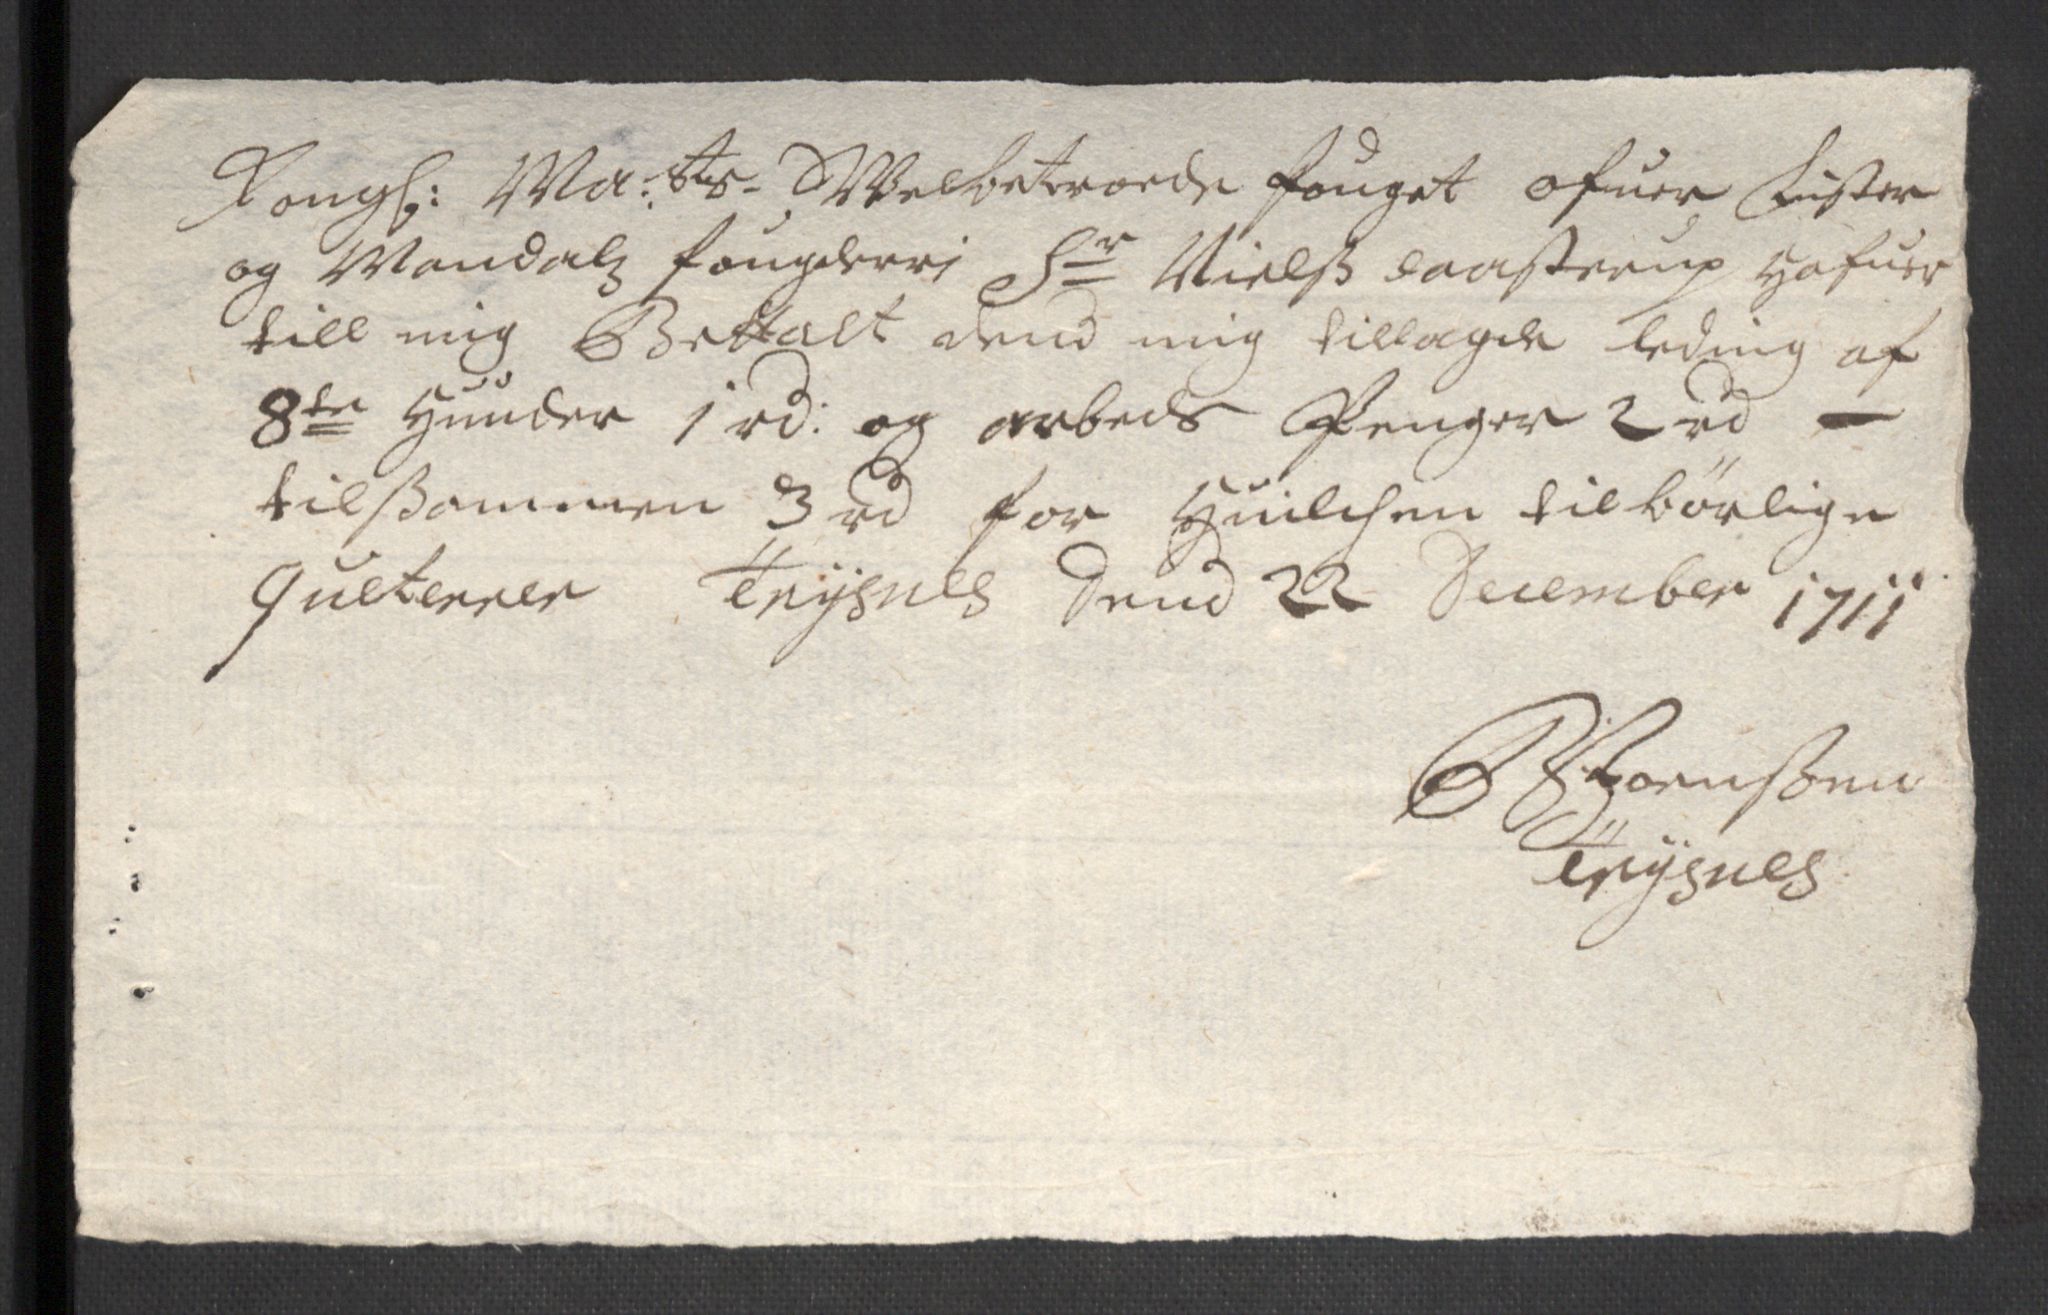 Kongl: Ma:tts Welbetroede fouget ofuer Lister
og Mandalß fougderri Sr Nielß Taastrup Hafuer
till mig Bettalt dend mig tillagde leding af
8te Hunder 1 rd: og arbeds Penger 2 rd —
tilßammen 3 rd for Huilchen tilbörlige
quetterer Trÿsnes Dend 22 December 1711
Biörenßen
Trÿsnes